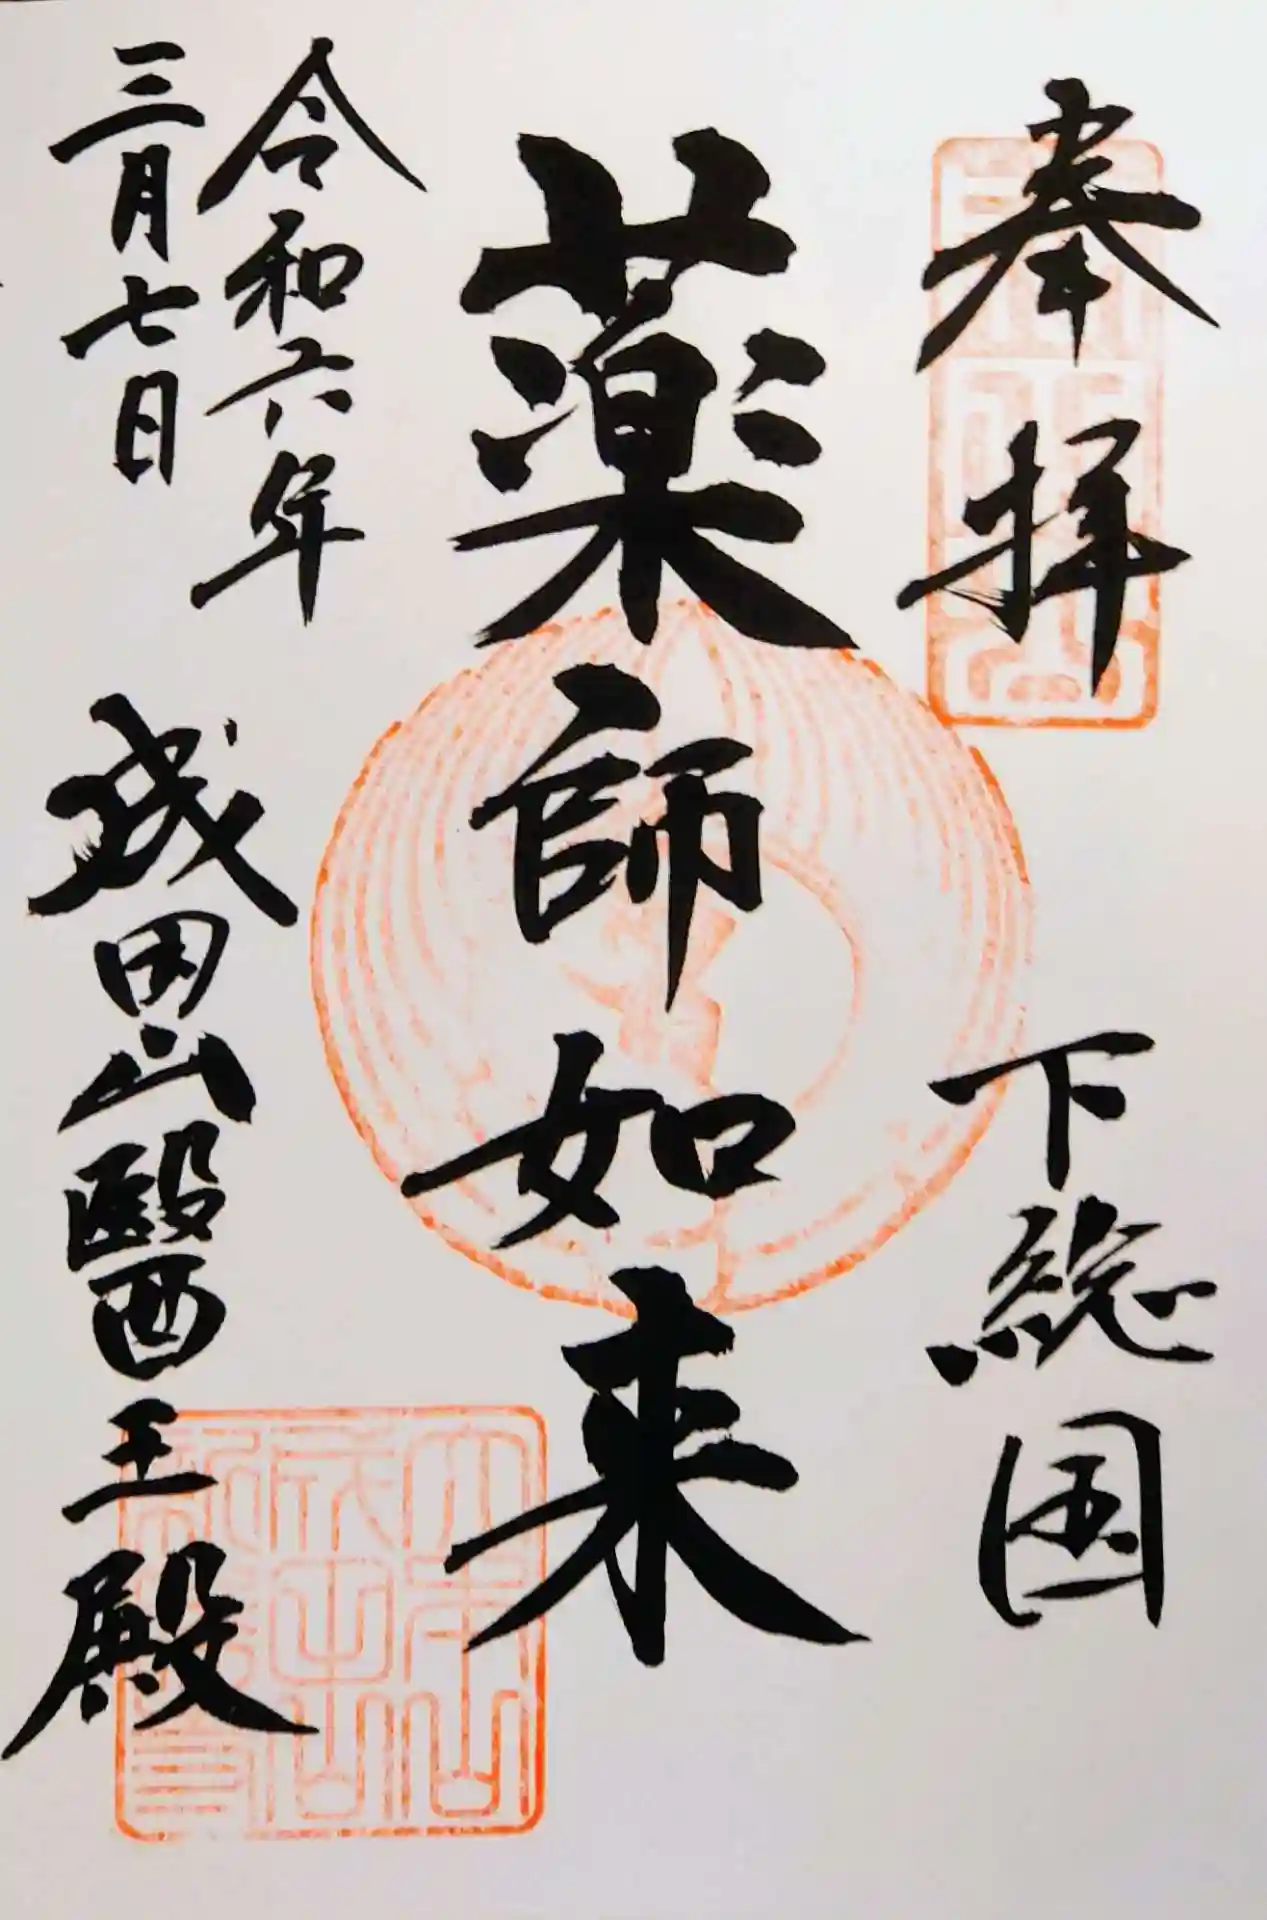 奉拝
下総国
薬師如来
令和六年
三月七日
成田山醫王殿